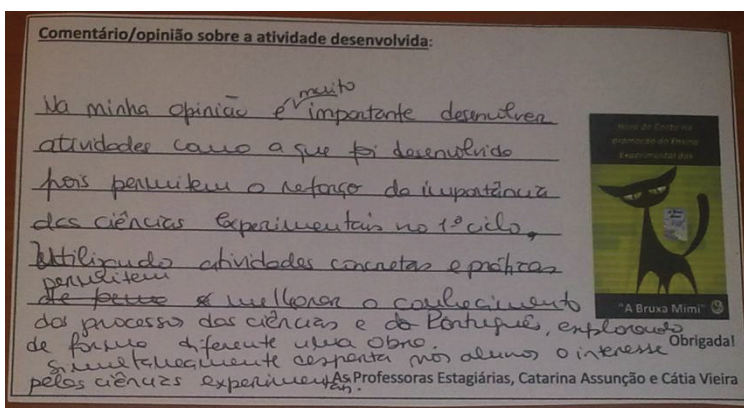 Comentário/opinião sobre a atividade desenvolvida:
muito
Na minha opinião é importante desenvolver
atividades como a que foi desenvolvida
pois permitem o reforço da importância
das ciências experimentais no 1º ciclo,
Utilizando atividades concretas e práticas
permitem
de forma a melhorar o conhecimento
dos processo das ciências e do Português, explorando
de forma diferente uma obra.
Simultaneamente desperta nos alunos o interesse
pelas ciências experimentais.
Hora do Conto na
promoção do Ensino
Experimental das
"A Bruxa Mimi"
Obrigada!
As Professoras Estagiárias, Catarina Assunção e Cátia Vieira